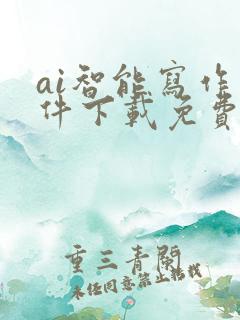 ai智能寫作
件下載免費
重三青閣
未经同意禁止转载